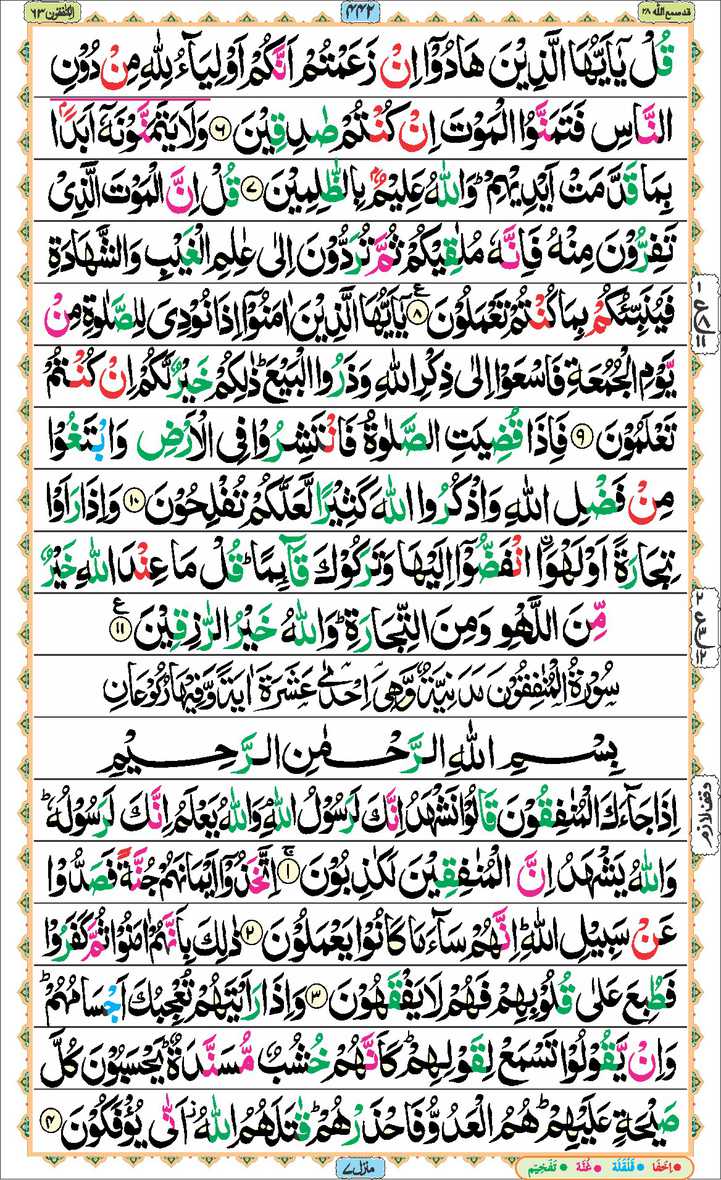 قد سمع الله ٢٨
٤٤٢
المنفقون ٦٣
قُلْ يٰۤاَيُّهَا الَّذِيْنَ هَادُوْۤا اِنْ زَعَمْتُمْ اَنَّكُمْ اَوْلِيَآءُ لِلّٰهِ مِنْ دُوْنِ
النَّاسِ فَتَمَنَّوُا الْمَوْتَ اِنْ كُنْتُمْ صٰدِقِيْنَ ۶ وَلَا يَتَمَنَّوْنَهٗۤ اَبَدًۢا
بِمَا قَدَّمَتْ اَيْدِيْهِمْ ؕ وَاللّٰهُ عَلِيْمٌۢ بِالظّٰلِمِيْنَ ۷ قُلْ اِنَّ الْمَوْتَ الَّذِيْ
تَفِرُّوْنَ مِنْهُ فَاِنَّهٗ مُلٰقِيْكُمْ ثُمَّ تُرَدُّوْنَ اِلٰى عٰلِمِ الْغَيْبِ وَالشَّهَادَةِ
فَيُنَبِّئُكُمْ بِمَا كُنْتُمْ تَعْمَلُوْنَ ۸ يٰۤاَيُّهَا الَّذِيْنَ اٰمَنُوْۤا اِذَا نُوْدِيَ لِلصَّلٰوةِ مِنْ
يَّوْمِ الْجُمُعَةِ فَاسْعَوْا اِلٰى ذِكْرِ اللّٰهِ وَذَرُوا الْبَيْعَ ؕ ذٰلِكُمْ خَيْرٌ لَّكُمْ اِنْ كُنْتُمْ
تَعْلَمُوْنَ ۹ فَاِذَا قُضِيَتِ الصَّلٰوةُ فَانْتَشِرُوْا فِي الْاَرْضِ وَابْتَغُوْا
مِنْ فَضْلِ اللّٰهِ وَاذْكُرُوا اللّٰهَ كَثِيْرًا لَّعَلَّكُمْ تُفْلِحُوْنَ ۱۰ وَاِذَا رَاَوْا
تِجَارَةً اَوْ لَهْوَا ۟انْفَضُّوْۤا اِلَيْهَا وَتَرَكُوْكَ قَآىِٕمًا ؕ قُلْ مَا عِنْدَ اللّٰهِ خَيْرٌ
مِّنَ اللَّهْوِ وَمِنَ التِّجَارَةِ ؕ وَاللّٰهُ خَيْرُ الرّٰزِقِيْنَ ۱۱
سُوْرَةُ الْمُنٰفِقُوْنَ مَدَنِيَّةٌ وَّهِيَ اِحْدٰى عَشَرَةَ اٰيَةً وَّفِيْهَا رُكُوْعَانِ
بِسْمِ اللّٰهِ الرَّحْمٰنِ الرَّحِيْمِ
اِذَا جَآءَكَ الْمُنٰفِقُوْنَ قَالُوْا نَشْهَدُ اِنَّكَ لَرَسُوْلُ اللّٰهِ ۘ وَاللّٰهُ يَعْلَمُ اِنَّكَ لَرَسُوْلُهٗ ؕ
وَاللّٰهُ يَشْهَدُ اِنَّ الْمُنٰفِقِيْنَ لَكٰذِبُوْنَ ۱ اِتَّخَذُوْۤا اَيْمَانَهُمْ جُنَّةً فَصَدُّوْا
عَنْ سَبِيْلِ اللّٰهِ ؕ اِنَّهُمْ سَآءَ مَا كَانُوْا يَعْمَلُوْنَ ۲ ذٰلِكَ بِاَنَّهُمْ اٰمَنُوْا ثُمَّ كَفَرُوْا
فَطُبِعَ عَلٰى قُلُوْبِهِمْ فَهُمْ لَا يَفْقَهُوْنَ ۳ وَاِذَا رَاَيْتَهُمْ تُعْجِبُكَ اَجْسَامُهُمْ ؕ
وَاِنْ يَّقُوْلُوْا تَسْمَعْ لِقَوْلِهِمْ ؕ كَاَنَّهُمْ خُشُبٌ مُّسَنَّدَةٌ ؕ يَحْسَبُوْنَ كُلَّ
صَيْحَةٍ عَلَيْهِمْ ؕ هُمُ الْعَدُوُّ فَاحْذَرْهُمْ ؕ قٰتَلَهُمُ اللّٰهُ ؗ اَنّٰى يُؤْفَكُوْنَ ۴
وقف لازم
منزل ۷
اِخفَا • قَلقَلَة • غُنَّة • تَفخِیم •